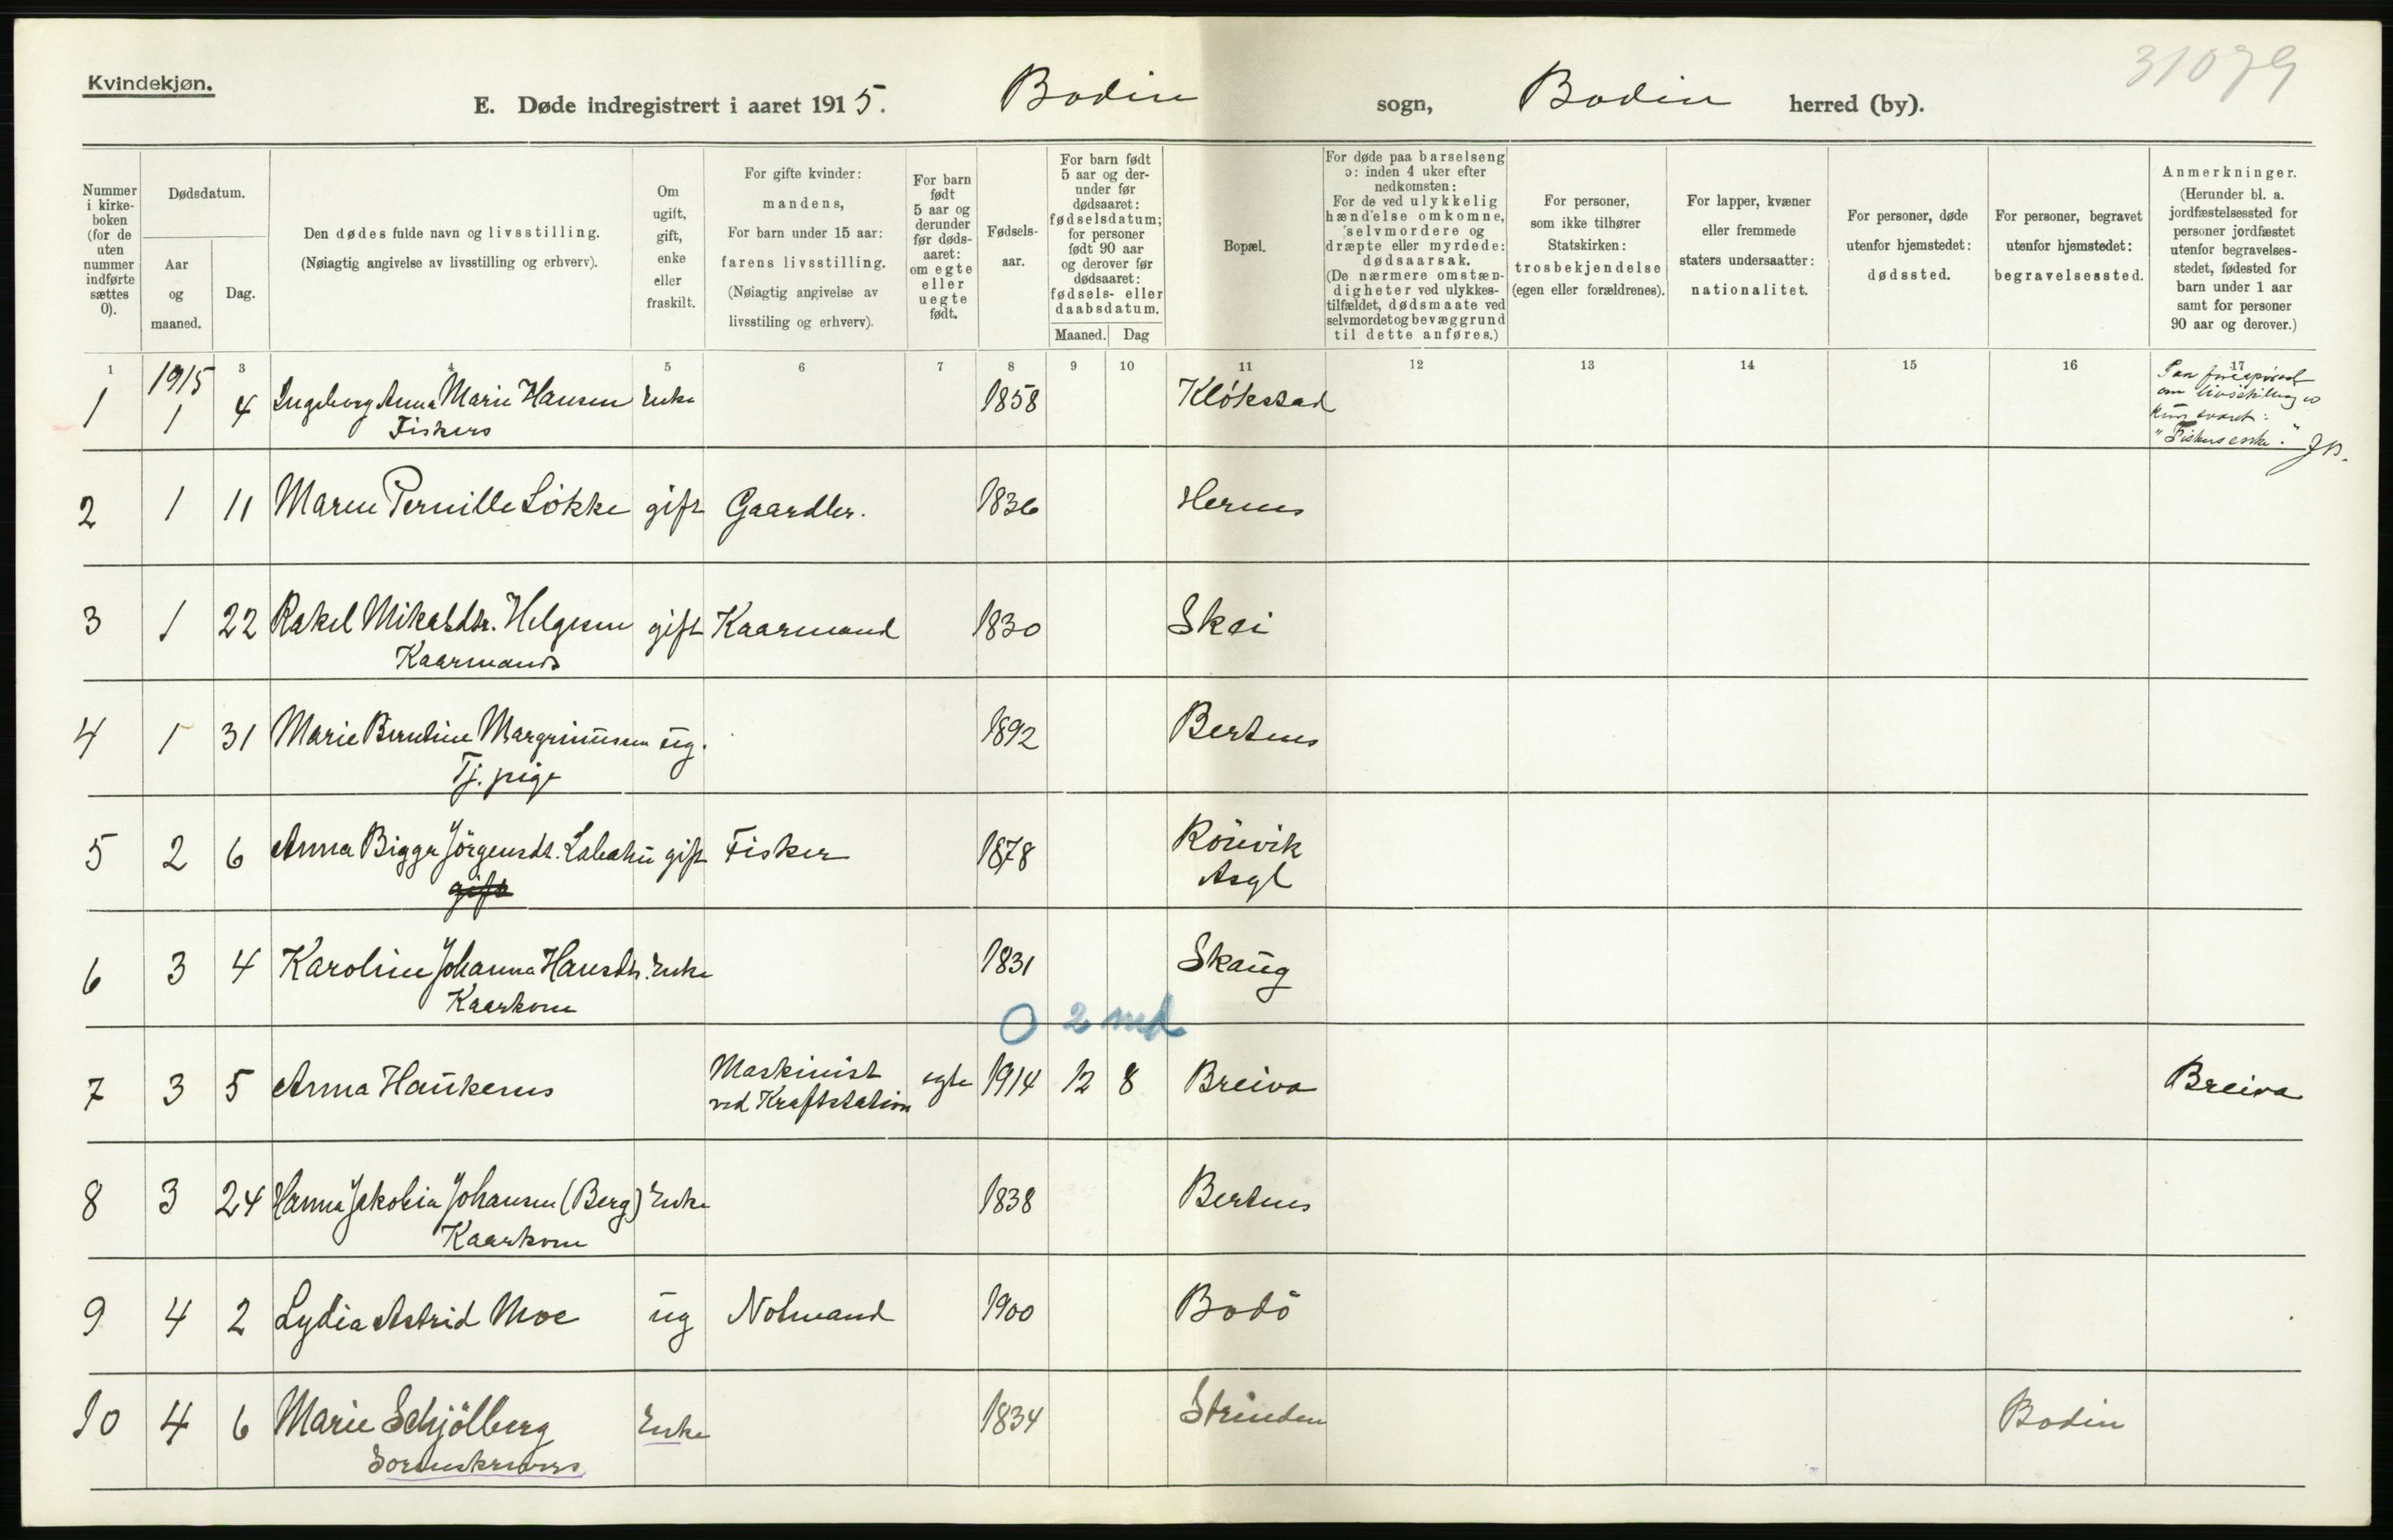 31079
Kvindekjøn.
E. Døde indregistrert i aaret 1915. Bodin sogn, Bodin herred (by).
Nummer i kirke-boken (for de uten nummer indførte sættes 0).
Dødsdatum.
Aar og maaned.
Dag.
Den dødes fulde navn og livsstilling.
(Nøiagtig angivelse av livsstilling og erhverv).
Om ugift, gift, enke eller fraskilt.
For gifte kvinder: mandens,
For barn under 15 aar: farens livsstilling.
(Nøiagtig angivelse av livsstiling og erhverv).
For barn født 5 aar og derunder før døds-aaret: om egte eller uegte født.
Fødsels-aar.
For barn født 5 aar og der-under før dødsaaret: fødselsdatum; for personer født 90 aar og derover før dødsaaret: fødsels- eller daabsdatum.
Maaned. Dag
Bopæl.
For døde paa barselseng ɔ: inden 4 uker efter nedkomsten:
For de ved ulykkelig hændelse omkomne, selvmordere og dræpte eller myrdede: dødsaarsak.
(De nærmere omstæn-digheter ved ulykkes-tilfældet, dødsmaate ved selvmordet og bevæggrund til dette anføres.)
For personer, som ikke tilhører Statskirken: trosbekjendelse (egen eller forældrenes).
For lapper, kvæner eller fremmede staters undersaatter: nationalitet.
For personer, døde utenfor hjemstedet: dødssted.
For personer, begravet utenfor hjemstedet: begravelsessted.
Anmerkninger.
(Herunder bl. a. jordfæstelsessted for personer jordfæstet utenfor begravelses-stedet, fødested for barn under 1 aar samt for personer 90 aar og derover.)
1 3 4 5 6 7 8 9 10 11 12 13 14 15 16 17
1915
1 1 4 Ingeborg Anna Marie Hansen Enke 1858 Klökstad
Fiskers
Paa forespörsel
om livsstilling
kun svaret:
"Fiskerenke".
2 1 11 Maren Pernille Lökke gift Gaardbr. 1836 Hernes
3 1 22 Rakel Mikalsdtr. Helgesen gift Kaarmand 1830 Skei
Kaarmands
4 1 31 Marie Berntine Margrinusen ug. 1892 Bertnes
Tj. pige
5 2 6 Anna Bigga Jörgensdt. gift Fisker 1878 Rönvik
gift Asyl
6 3 4 Karoline Johanna Hansdtr. Enke 1831 Skaug
Kaarkone
O 2 md
7 3 5 Anna Haukenes Maskinist egte 1914 12 8 Breiva Breiva
ved Kraftstation
8 3 24 Hanna Jakobia Johansen (Berg) Enke 1838 Bertnes
Kaarkone
9 4 2 Lydia Astrid Moe ug Notmand 1900 Bodö
10 4 6 Marie Schjölberg Enke 1834 Strinden Bodin
Sorenskrivers